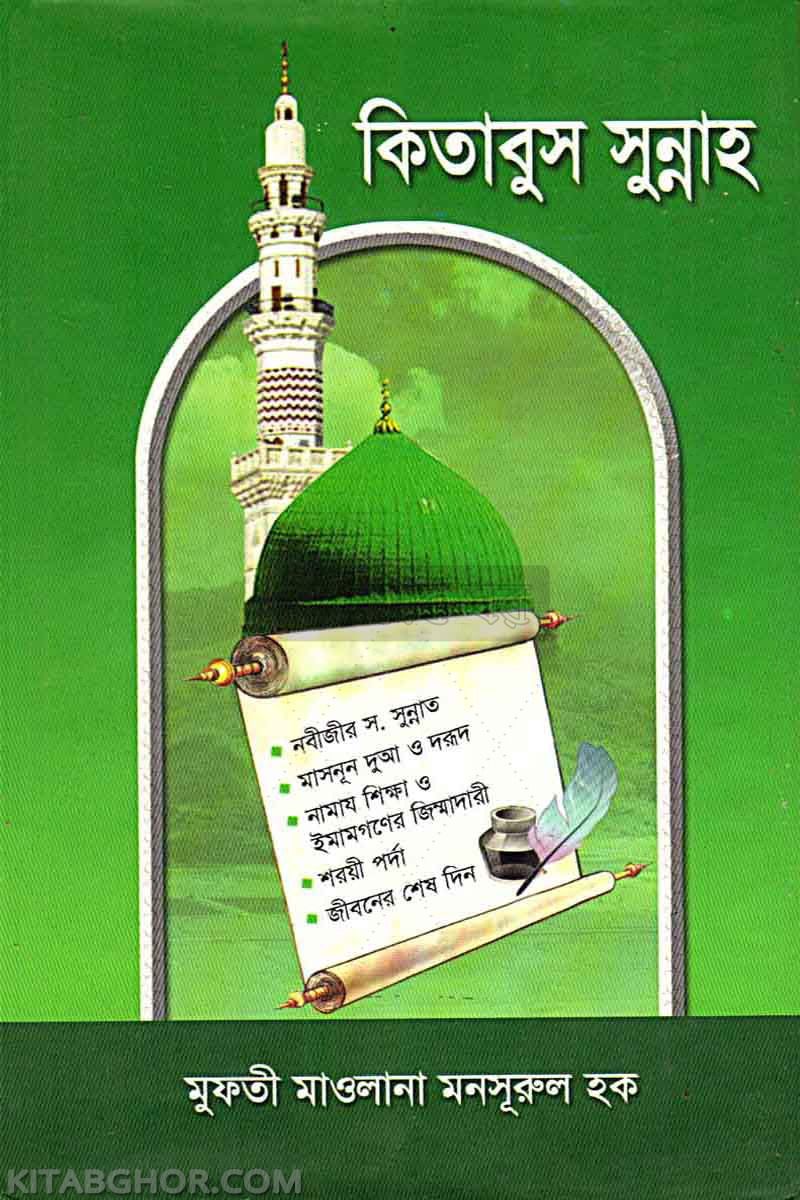 কিতাবুস সুন্নাহ
নবীজীর স. সুন্নাত
মাসনূন দুআ ও দরূদ
নামায শিক্ষা ও
ইমামগণের জিম্মাদারী
শরয়ী পর্দা
জীবনের শেষ দিন
মুফতী মাওলানা মনসূরুল হক
KITABGHOR.COM